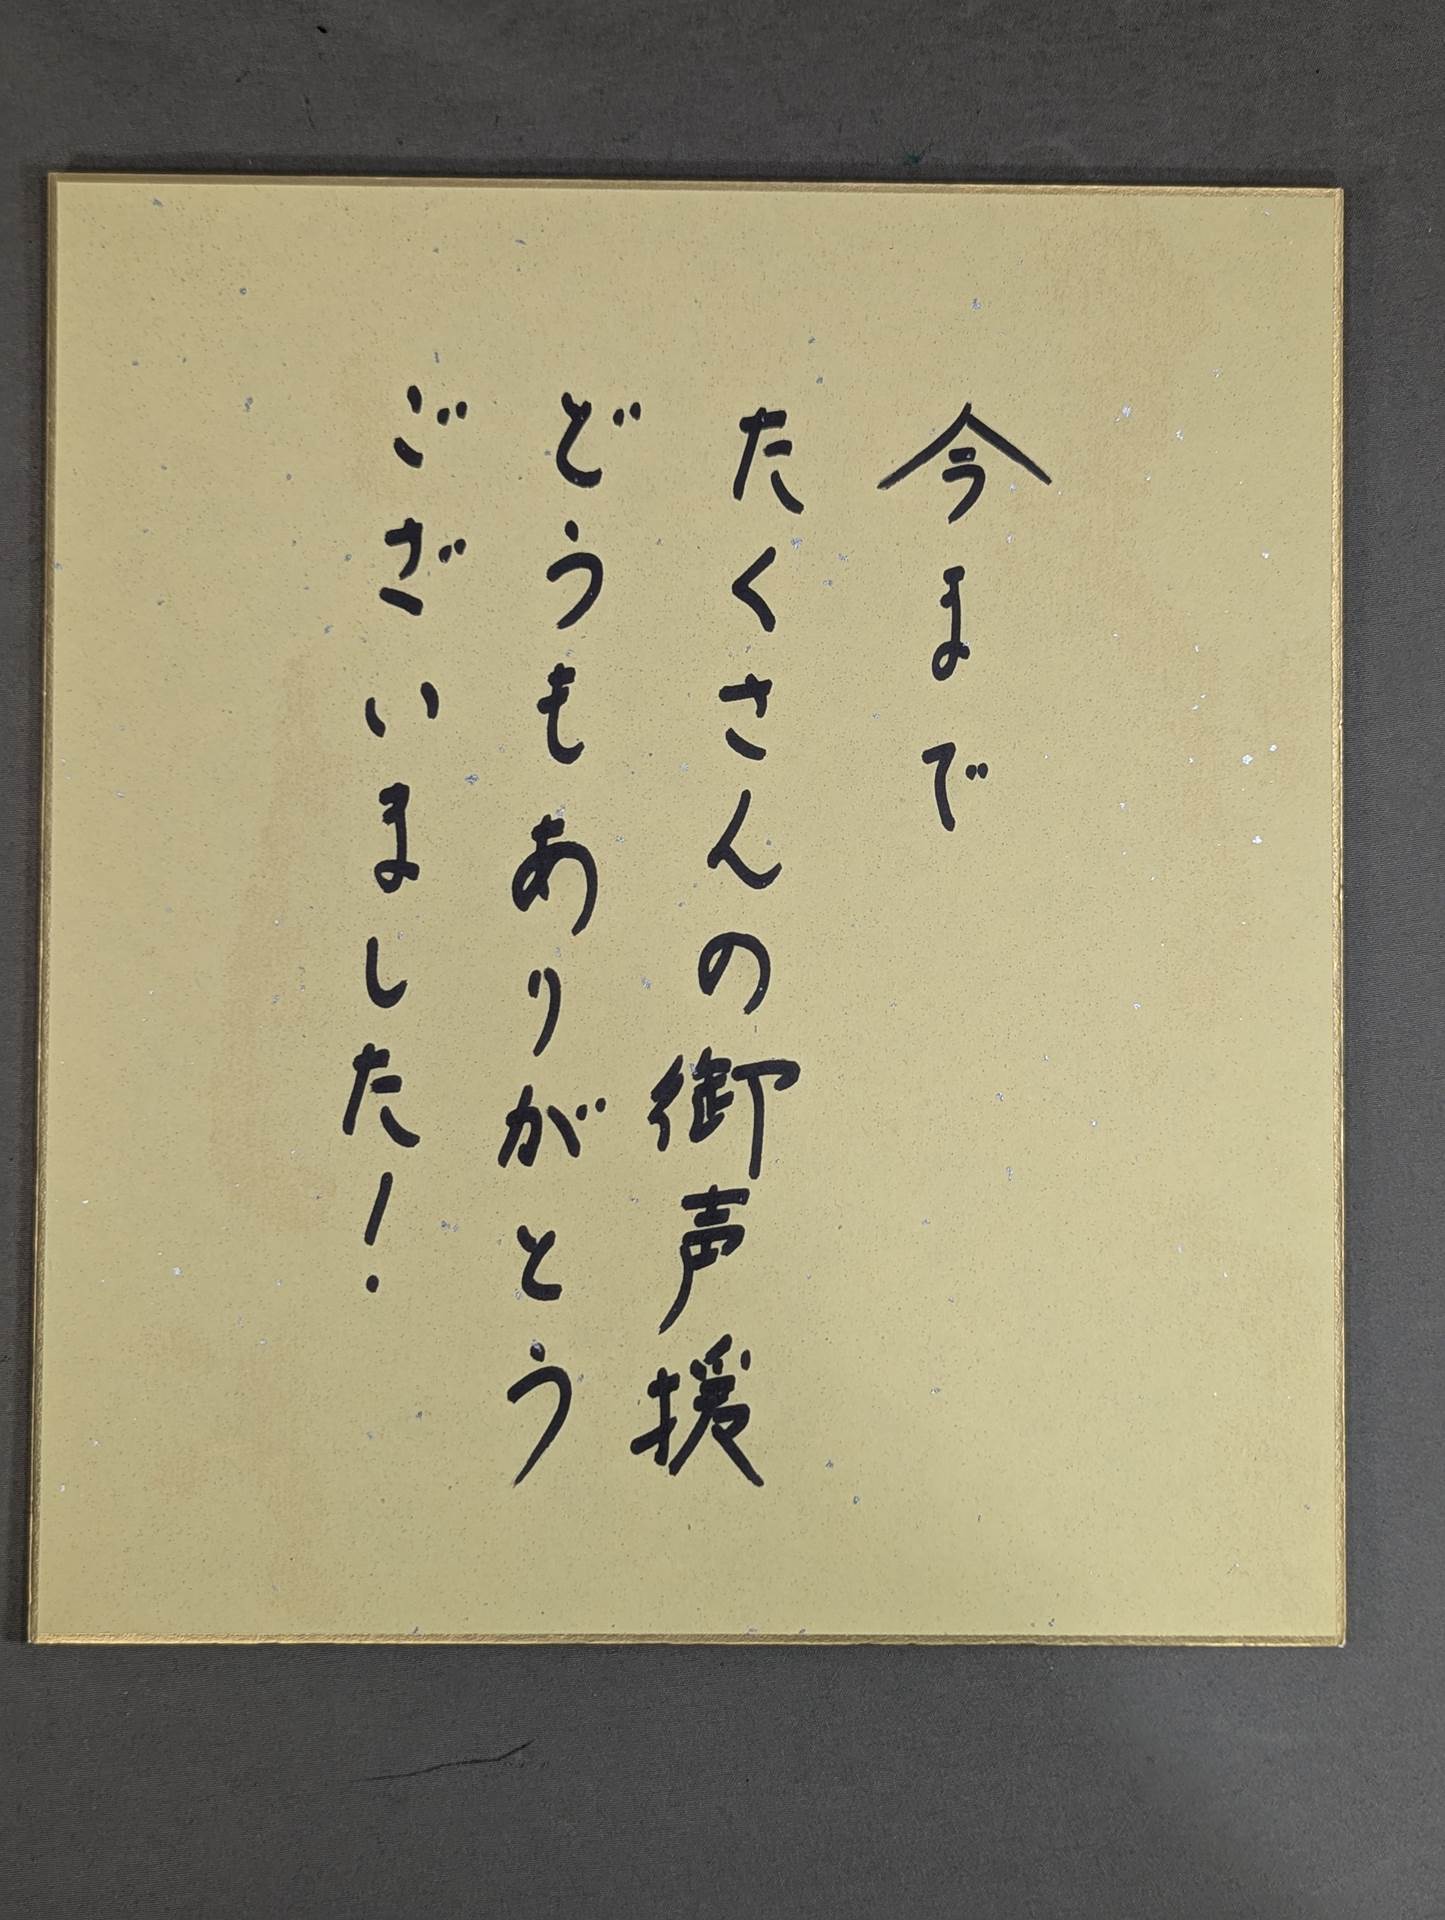 今まで
たくさんの御声援
どうもありがとう
ございました!